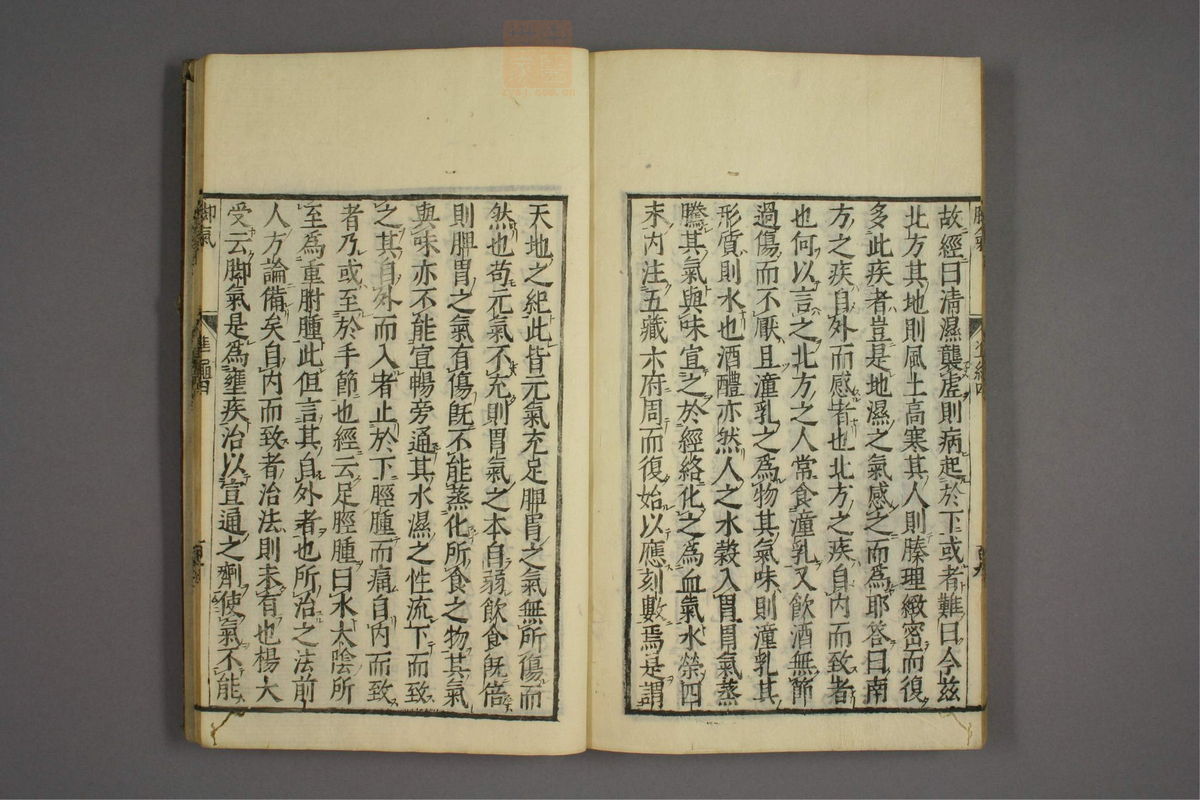 故經曰清濕襲虛則病起於下或者難曰今兹
北方其地則風土高寒其人則腠理緻密而復
多此疾者豈是地濕之氣感之而為耶答曰南
方之疾自外而感者也北方之疾自内而致者
也何以言之北方之人常食潼乳又飲酒無節
過傷而不厭且潼乳之為物其氣味則潼乳其
形質則水也酒醴亦然人之水穀入胃胃氣蒸
騰其氣與味宣之於經絡化之為血氣水榮四
末内注五藏六府周而復始以應刻數焉是謂
天地之紀此皆元氣充足脾胃之氣無所傷而
然也苟元氣不充則胃氣之本自弱飲食既倍
則脾胃之氣有傷既不能蒸化所食之物其氣
與味亦不能宣暢旁通其水濕之性流下而致
之其自外而入者止於下脛腫而痛自内而致
者乃或至於手節也經云足脛腫曰水太陰所
至為重胕腫此但言其自外者也所治之法前
人方論備矣自内而致者治法則未有也楊大
受云脚氣是為壅疾治以宣通之劑使氣不能
脚氣
準繩四